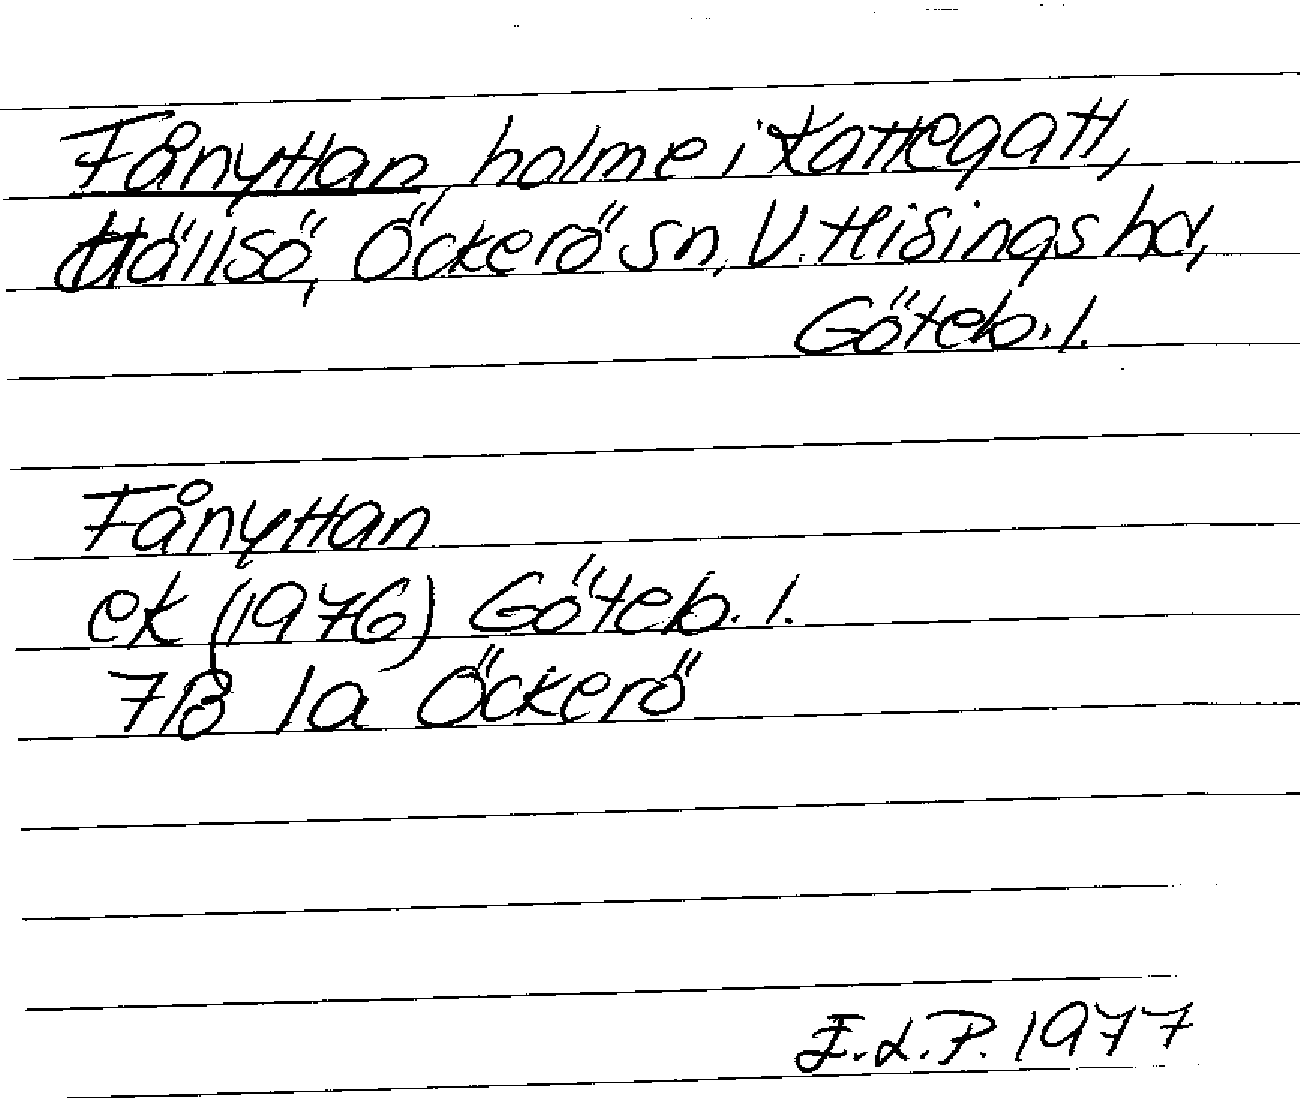 Fånyttan, holme i Kattegatt,
Hällsö, Öckerö sn, V. Hisings hd,
Göteb. l.
Fånyttan
ek (1976) Göteb. l.
7B 1a Öckerö
E.L.P. 1977